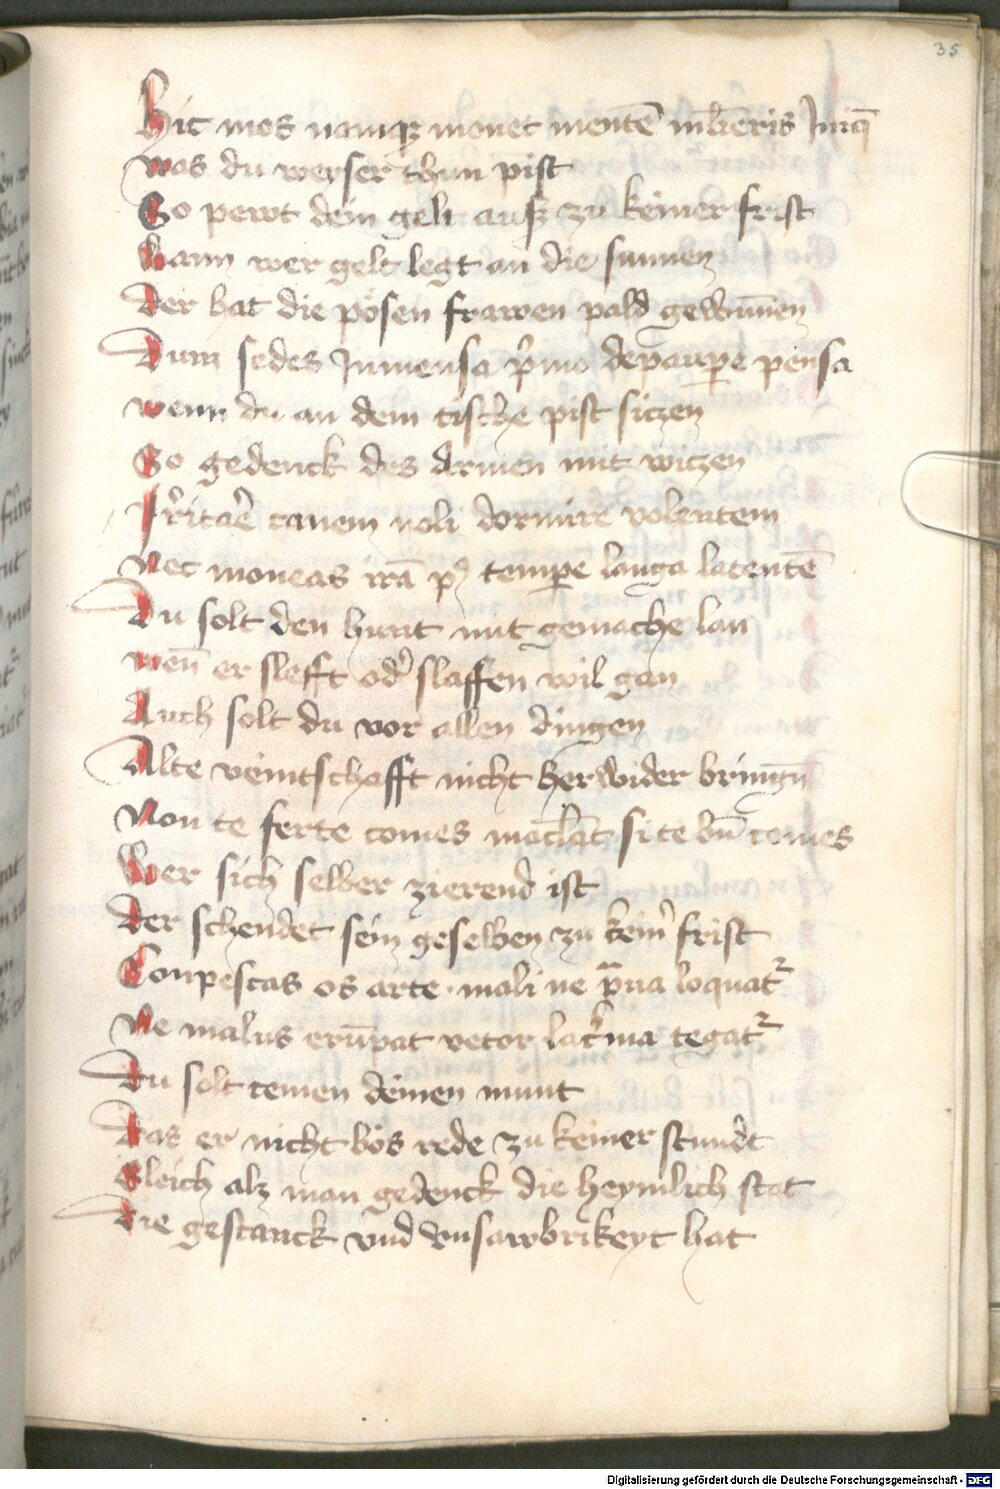 35
Hic mos namqꝫ monet mentē mul̄ieris Iniq̄
was du weyser thun pist
So pewt dein gelt auſz zu keiner frist
Wann wer gelt legt an die sunnen
Der hat die pösen frawen pald gewūnnen
Dum sedes Inmensa p̄mo de paup̲e pensa
wenn du an dem tische pist siczen
So gedenck des armen mit wiczen
Irritar̄e canem noli dormire volentem
Nec moueas irā p̲ temp̲e longa latentē
Du solt den hunt mit gemache lan
wen̄ er slefft od̓ slaffen wil gan
Auch solt du vor allen dingen
Alte veintschafft nicht herwider bringn̄
Non te ferte comes macl̄at si te bn̄ comes
Wer sich selber zierend ist
Der schendet sein geselben zu kein̓ frist
Conpescas os arte mali ne p̄ua loquat᷑
Ne malus erūpat vetor lat̓ina tegat᷑
Du solt temen deinen munt
Das er nicht bös rede zu keiner stundt
Gleich alz man gedenck die heymlich stat
Die gestanck vnd vnsawbrikeyt hat
Digitalisierung gefördert durch die Deutsche Forschungsgemeinschaft - DFG